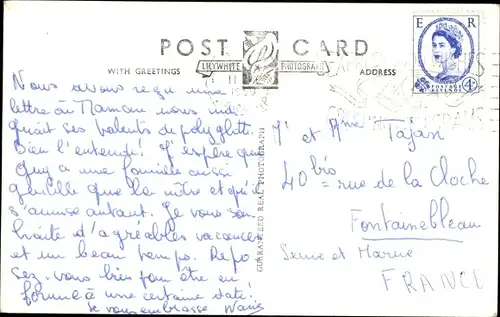 POST CARD
WITH GREETINGS
LILYWHITE PHOTOGRAPH
ADDRESS
E R
POSTAGE REVENUE
4D
GUARANTEED REAL PHOTOGRAPH
Nous avons reçu une
lettre où Maman nous indi
quait ses talents de polyglotte.
Bien l'entends! J'espère que
Guy a une famille aussi
gentille que la nôtre et qu'il
s'amuse autant. Je vous sou
haite d'agréables vacances
et un beau temps. Repo
sez-vous bien pour être en
forme à une certaine date!
Je vous embrasse
Mr et Mme Tajan
40 bis rue de la Cloche
Fontainebleau
Seine et Marne
FRANCE